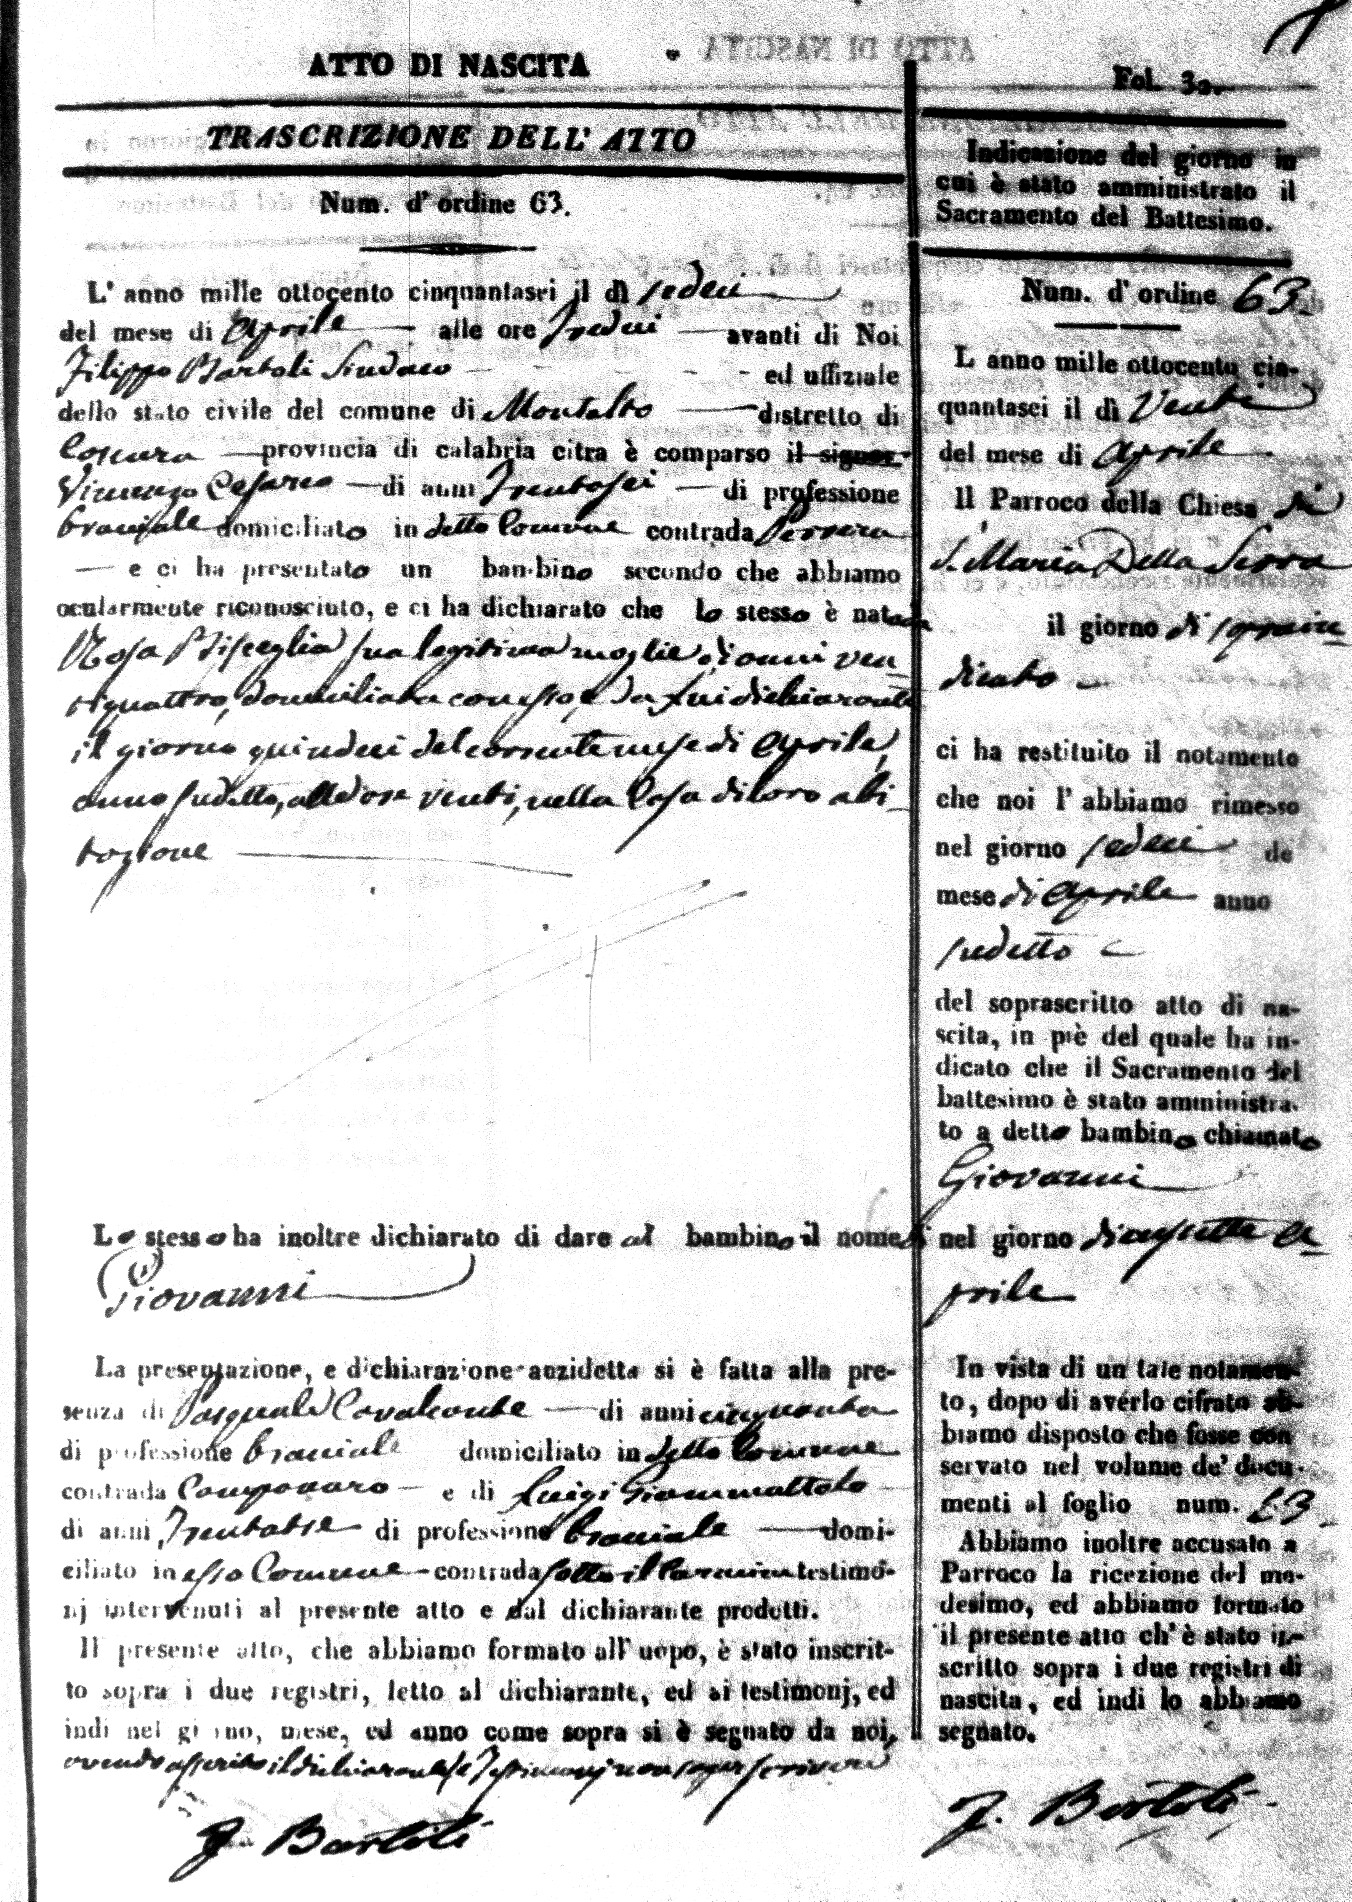 ATTO DI NASCITA
TRASCRIZIONE DELL' ATTO
Num. d' ordine 63.
L' anno mille ottocento cinquantasei il dì sedeci
del mese di Aprile alle ore Tredeci avanti di Noi
Filippo Bartoli Sindaco ed uffiziale
dello stato civile del comune di Montalto distretto di
Cosenza provincia di calabria citra è comparso il signor
Vincenzo Cesario di anni Trentasei di professione
bracciale domiciliato in detto Comune contrada
e ci ha presentato un bambino secondo che abbiamo
ocularmente riconosciuto, e ci ha dichiarato che lo stesso è nato da
Rosa Bisceglia sua legitima moglie, di anni ven
tiquattro, domiciliata con esso, e da lui dichiarante
il giorno quindeci del corrente mese di Aprile,
anno sudetto, alle ore venti, nella Casa di loro abi
tazione
Lo stesso ha inoltre dichiarato di dare al bambino il nome di
Giovanni
La presentazione, e dichiarazione anzidetta si è fatta alla pre-
senza di Pasquale Cavalcante di anni cinquanta
di professione bracciale domiciliato in detto Comune
contrada Componaro e di Luigi Giammattolo
di anni Trentatre di professione bracciale domi-
ciliato in esso Comune contrada sotto il Carmine testimo-
nj intervenuti al presente atto e dal dichiarante prodotti.
Il presente atto, che abbiamo formato all' uopo, è stato inscrit-
to sopra i due registri, letto al dichiarante, ed ai testimonj, ed
indi nel giorno, mese, ed anno come sopra si è segnato da noi,
avendo asserito il dichiarante, e Testimonj non saper scrivere
F. Bartoli
Fol. 32.
Indicasione del giorno in
cui è stato amministrato il
Sacramento del Battesimo.
Num. d' ordine 63.
L anno mille ottocento cin-
quantasei il dì Venti
del mese di Aprile
Il Parroco della Chiesa di
S. Maria Della Serra
il giorno di sopra in
dicato
ci ha restituito il notamento
che noi l' abbiamo rimesso
nel giorno sedeci de
mese di Aprile anno
sudetto
del soprascritto atto di na-
scita, in piè del quale ha in-
dicato che il Sacramento del
battesimo è stato amministra-
to a detto bambino chiamato
Giovanni
nel giorno diciassette A-
prile
In vista di un tale notamen-
to, dopo di averlo cifrato ab-
biamo disposto che fosse con
servato nel volume de' docu-
menti al foglio num. 63.
Abbiamo inoltre accusato a
Parroco la ricezione del me-
desimo, ed abbiamo formato
il presente atto ch' è stato in-
scritto sopra i due registri di
nascita, ed indi lo abbiamo
segnato.
F. Bartoli